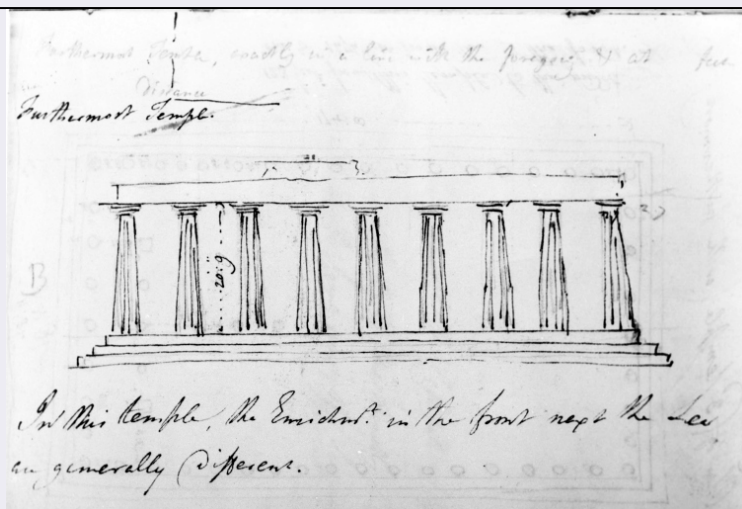 Furthermost Temple, exactly in a line with the foregoing & at feet
Distance
Furthermost Temple.
20.9
B
In this temple, the Enrichmt. in the front next the Sea
are generally Different.